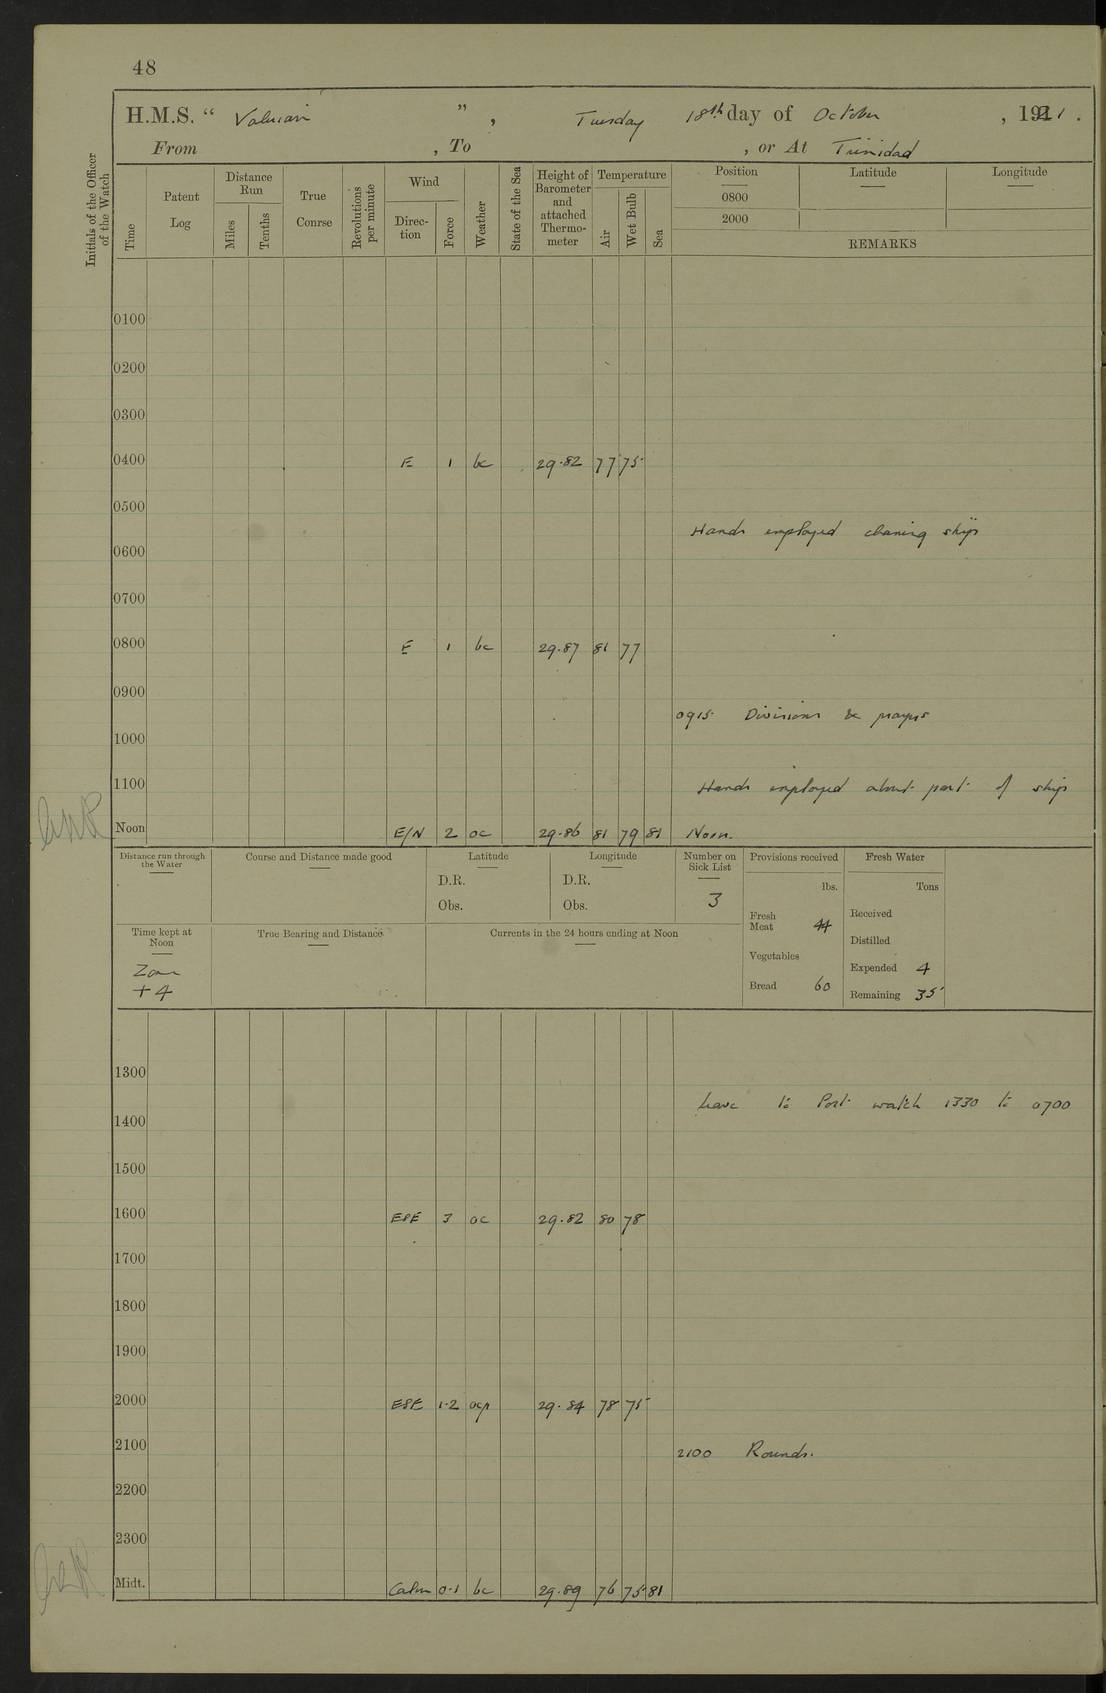 48
H.M.S. “ Valerian ”, Tuesday 18th day of October , 1921 .
From , To , or At Trinidad
Initials of the Officer of the Watch
Time
Patent Log
Distance Run
Miles
Tenths
True Conrse
Revolutions per minute
Wind
Direc-tion
Force
Weather
State of the Sea
Height of Barometer and attached Thermo-meter
Temperature
Air
Wet Bulb
Sea
Position Latitude Longitude
0800
2000
REMARKS
0100
0200
0300
0400 E 1 bc 29.82 77 75
0500
Hands employed cleaning ship
0600
0700
0800 E 1 bc 29.87 81 77
0900
0915 Divisions & prayers
1000
1100
Hands employed about part of ship
Noon E/N 2 oc 29.86 81 79 81 Noon.
Distance run through the Water
Course and Distance made good
Latitude
D.R.
Obs.
Longitude
D.R.
Obs.
Number on Sick List
3
Provisions received
lbs.
Fresh Meat 44
Vegetables
Bread 60
Fresh Water
Tons
Received
Distilled
Expended 4
Remaining 35
Time kept at Noon
Zone
+4
True Bearing and Distance
Currents in the 24 hours ending at Noon
1300
Leave to Port watch 1330 to 0700
1400
1500
1600 ESE 3 oc 29.82 80 78
1700
1800
1900
2000 ESE 1-2 ocp 29.84 78 75
2100
2100 Rounds.
2200
2300
Midt. Calm 0-1 bc 29.89 76 75 81